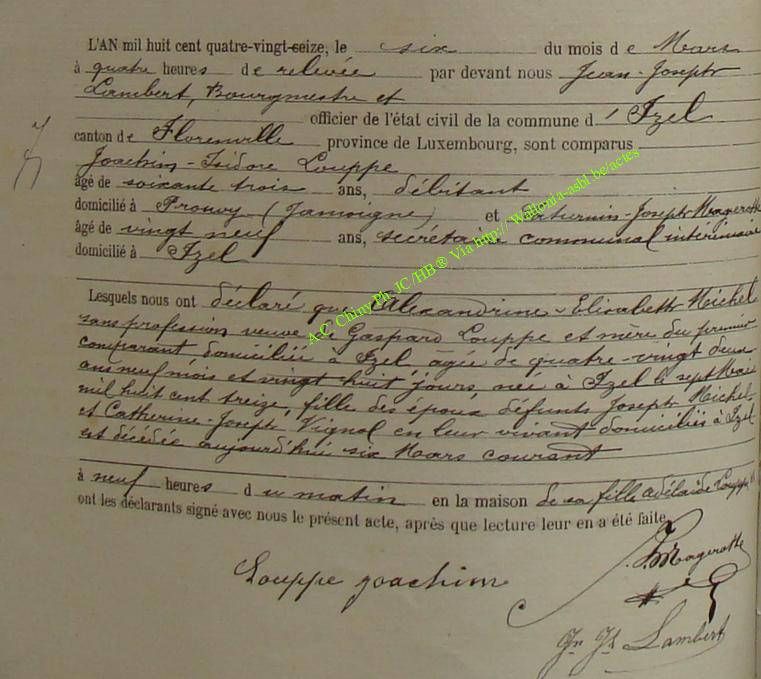 L'AN mil huit cent quatre-vingt-seize, le six du mois de Mars
à quatre heures de relevée par devant nous Jean-Joseph
Lambert, Bourgmestre et
officier de l'état civil de la commune d'Izel
canton de Florenville province de Luxembourg, sont comparus
Joachim-Isidore Louppe
âgé de soixante trois ans, débitant
domicilié à Prouvy (Jamoigne) et Saturnin-Joseph Magerotte
âgé de vingt neuf ans, secrétaire communal intérimaire
domicilié à Izel
Lesquels nous ont déclaré que Alexandrine-Elisabeth Michel
sans profession veuve de Gaspard Louppe et mère du premier
comparant domiciliée à Izel, agée de quatre-vingt deux
ans neuf mois et vingt huit jours née à Izel le sept Mai
mil huit cent treize, fille des époux défunts Joseph Michel
et Catherine-Joseph Vignol en leur vivant domiciliés à Izel
est décédée aujourd'hui six Mars courant
à neuf heures du matin en la maison de sa fille Adélaïde Louppe
ont les déclarants signé avec nous le présent acte, après que lecture leur en a été faite
Magerotte
Louppe Joachim
Jn Jh Lambert
A.C. Chiny Ph. JC/HB ® Via http://Wallonia-asbl.be/actes